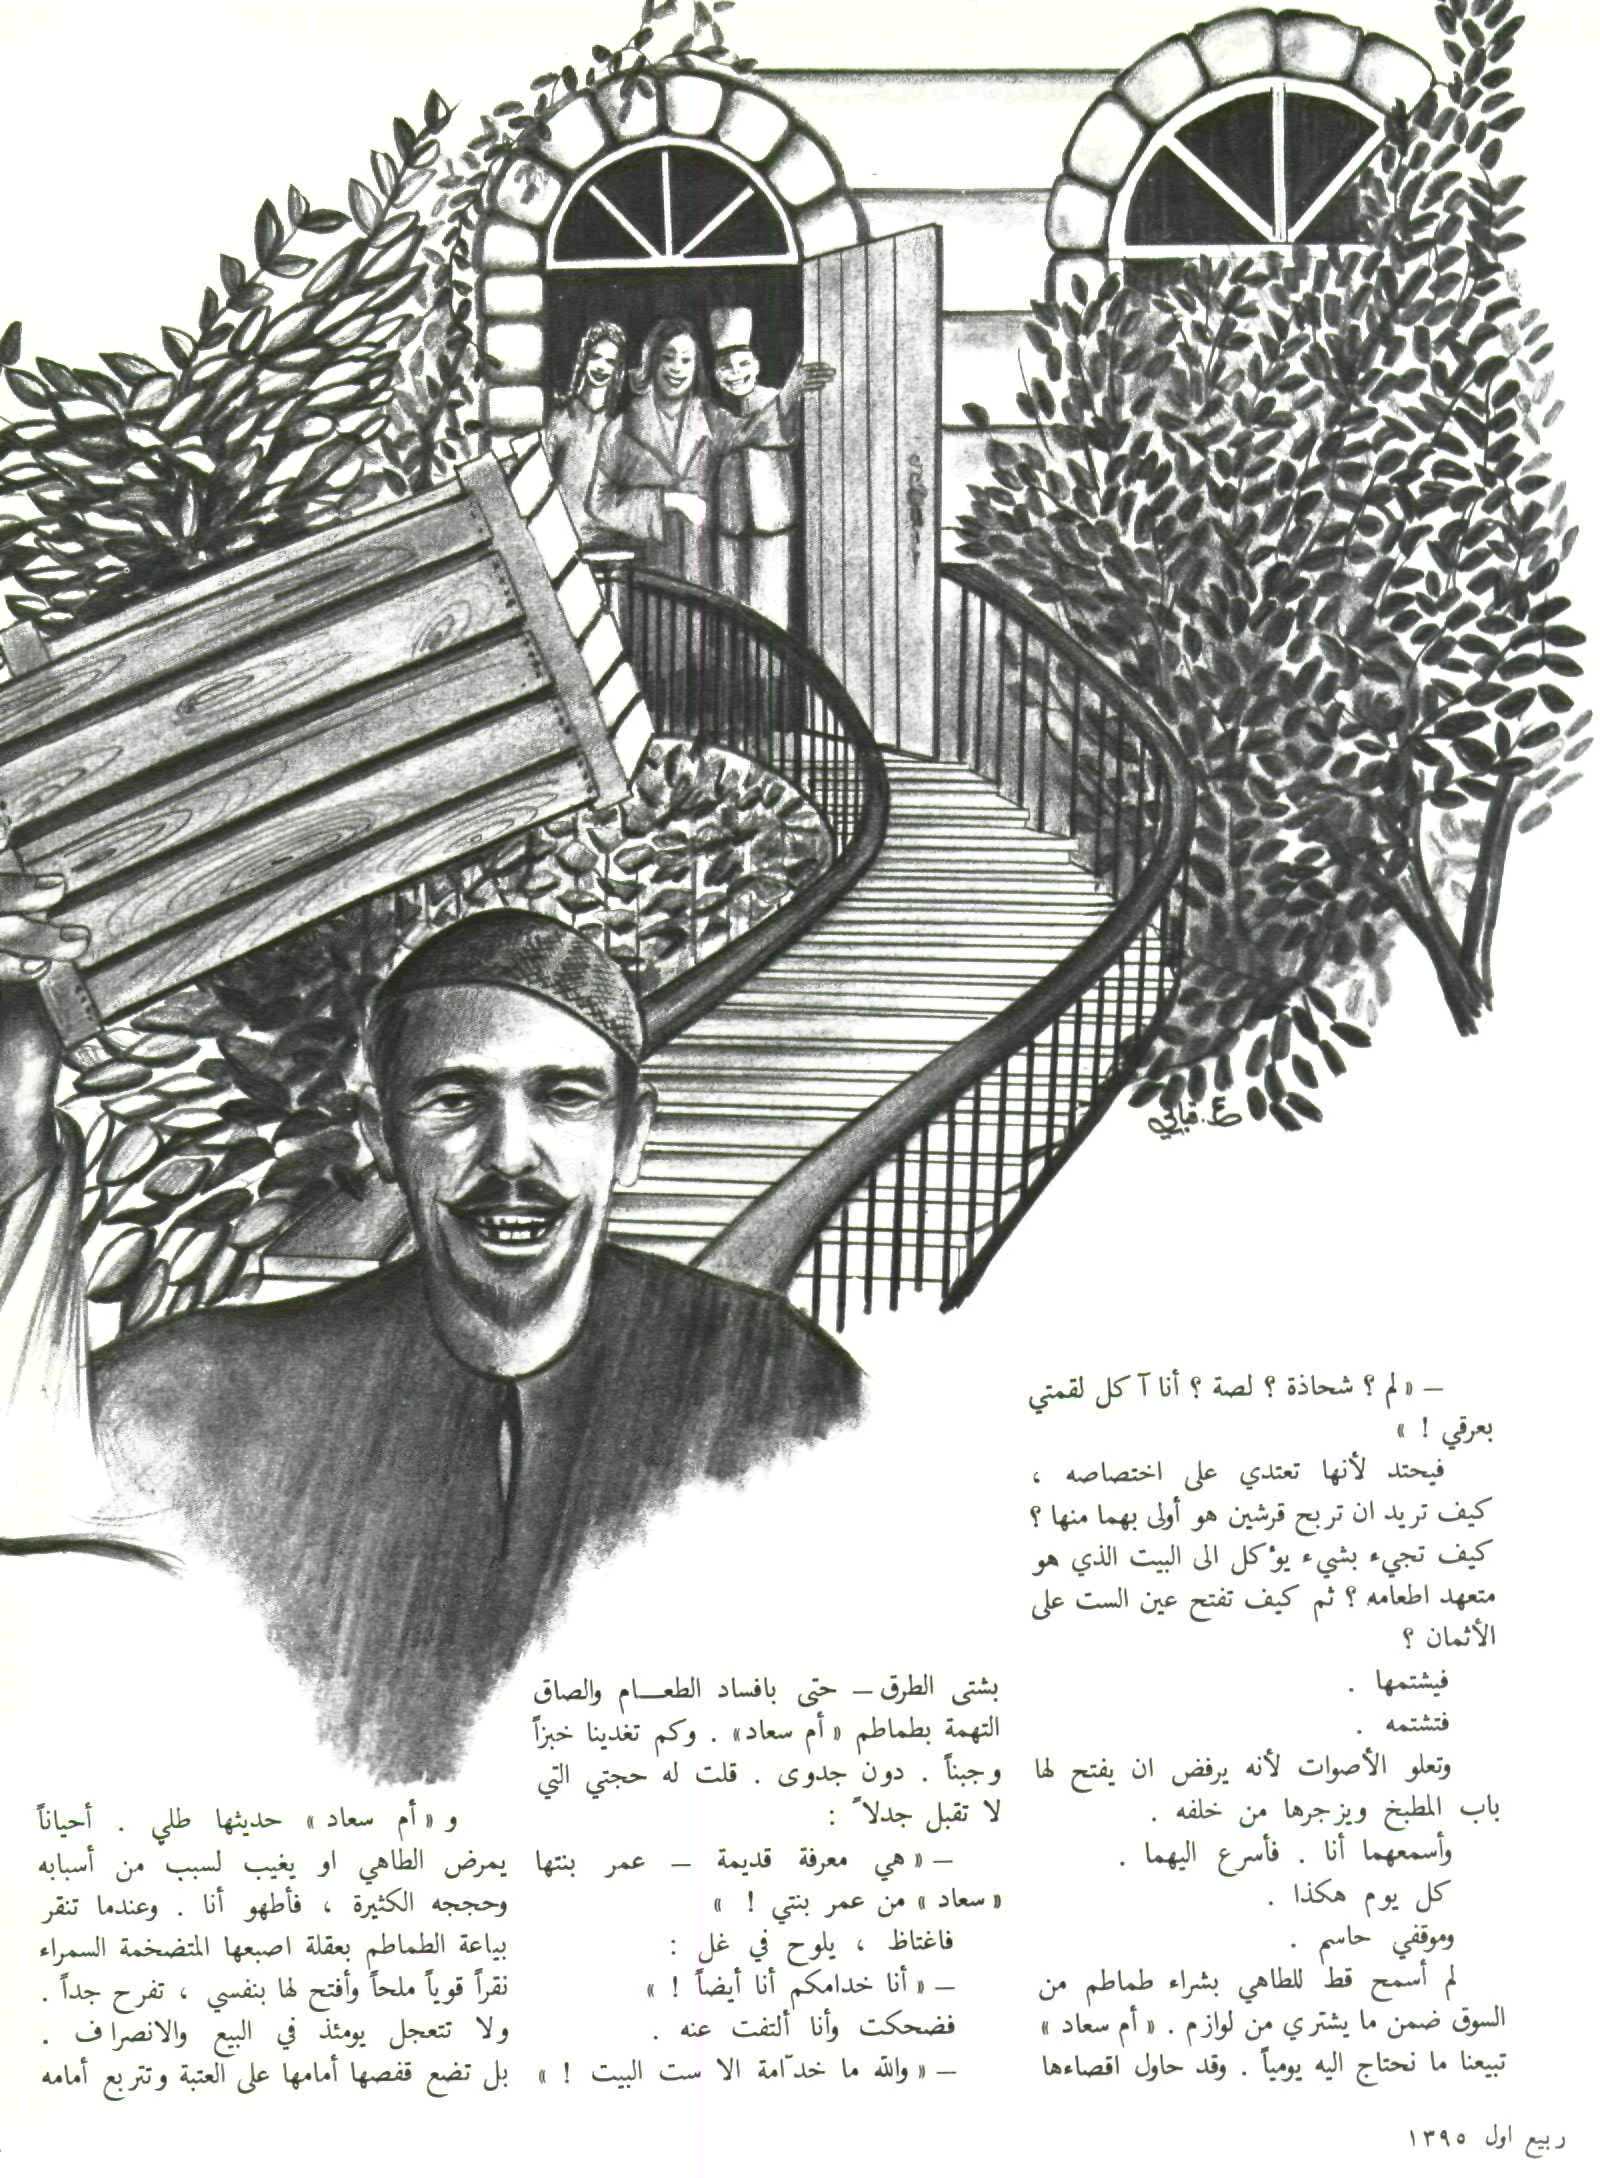 ع. قباني
— « لم ؟ شحاذة ؟ لصة ؟ أنا آكل لقمتي
بعرقي ! »
فيحتد لأنها تعتدي على اختصاصه ،
كيف تريد ان تربح قرشين هو أولى بهما منها ؟
كيف تجيء بشيء يؤكل الى البيت الذي هو
متعهد اطعامه ؟ ثم كيف تفتح عين الست على
الأثمان ؟
فيشتمها .
فتشتمه .
وتعلو الأصوات لأنه يرفض ان يفتح لها
باب المطبخ ويزجرها من خلفه .
وأسمعهما أنا . فأسرع اليهما .
كل يوم هكذا .
وموقفي حاسم .
لم أسمح قط للطاهي بشراء طماطم من
السوق ضمن ما يشتري من لوازم . « أم سعاد »
تبيعنا ما نحتاج اليه يومياً . وقد حاول اقصاءها
بشتى الطرق — حتى بافساد الطعــام والصاق
التهمة بطماطم « أم سعاد» . وكم تغدينا خبزاً
وجبناً . دون جدوى . قلت له حجتي التي
لا تقبل جدلاً :
— « هي معرفة قديمة — عمر بنتها
« سعاد » من عمر بنتي ! »
فاغتاظ ، يلوح في غل :
— « أنا خدامكم أنا أيضاً ! »
فضحكت وأنا ألتفت عنه .
— « والله ما خدّامة الا ست البيت ! »
و « أم سعاد » حديثها طلي . أحياناً
يمرض الطاهي او يغيب لسبب من أسبابه
وحججه الكثيرة ، فأطهو أنا . وعندما تنقر
بياعة الطماطم بعقلة اصبعها المتضخمة السمراء
نقراً قوياً ملحاً وأفتح لها بنفسي ، تفرح جداً .
ولا تتعجل يومئذ في البيع والانصراف .
بل تضع قفصها أمامها على العتبة وتتربع أمامه
ربيع اول ١٣٩٥